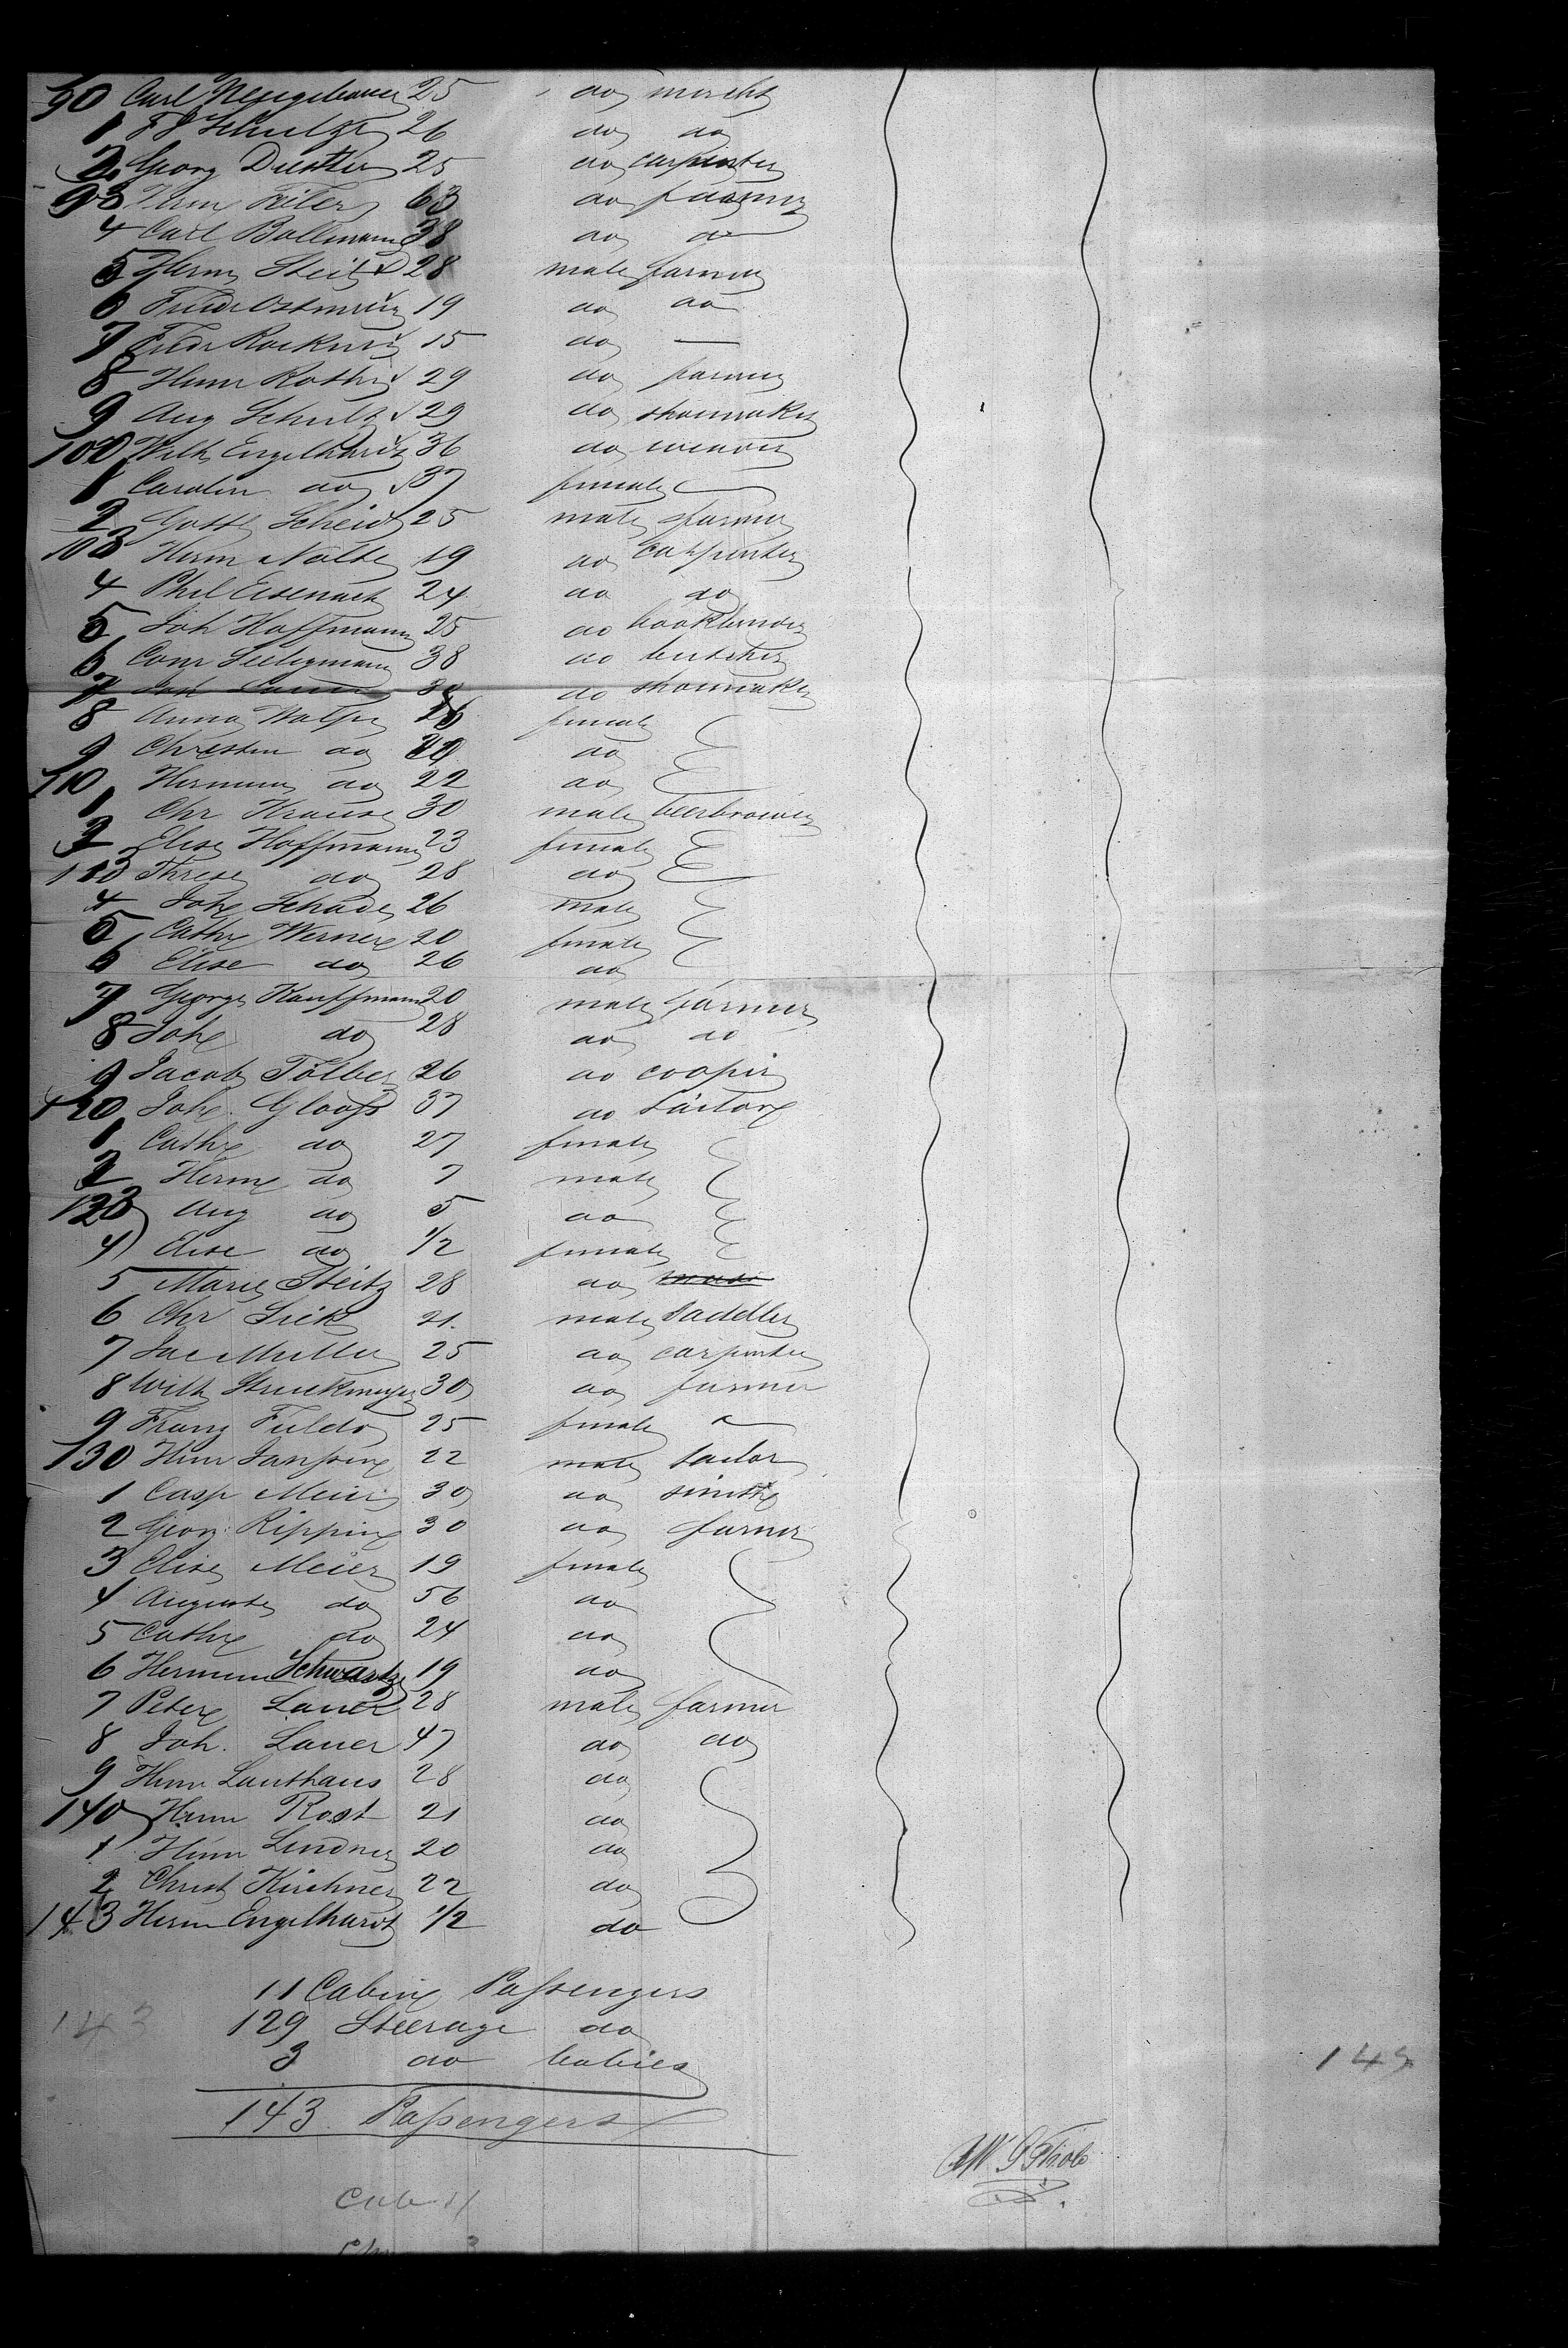 90 Carl Neugebauer 25 do mercht
1 F J Schultze 26 do do
2 Georg Duetter 25 do carpenter
93 Herm 63 do farmer
4 Carl Bollmann 38 do do
5 Herm Steitz 28 male farmer
6 Friedr Ostmeier 19 do do
7 Friedr 15 do —
8 Heinr Rothe 29 do farmer
9 Aug Schultz 29 do shoemaker
100 Wilh Engelhardt 36 do weaver
1 Carolin do 37 female
2 Gottl Scheidt 25 male farmer
103 Herm Nolte 19 do carpenter
4 Phil Eisenach 24 do do
5 Joh Hoffmann 25 do bookbinder
6 Conr Seeligmann 38 do butcher
7 do shoemaker
8 Anna female
9 Christin do do
110 Hermine do 22 do
1 Chr Krause 30 male beerbrower
2 Elise Hoffmann 23 female
113 Threse do 28 do
4 Joh Schade 26 male
5 Cathr Werner 20 female
6 Elise do 26 do
7 George Kauffmann 20 male farmer
8 Joh do 28 do do
9 Jacob Tölber 26 do cooper
120 Joh. Glooss 37 do tailor
1 Cathr do 27 female
2 Herm do 7 male
123 Aug do 5 do
4 Elise do 1/2 female
5 Marie Steitz 28 do
6 Chr Sick 21. male Saddler
7 Jac Muller 25 do carpenter
8 Wilh Struckmeyer 30 do farmer
9 Franz Fulda 25 female
130 Heinr 22 male tailor
1 Casp Meier 30 do smith
2 Georg Ripping 30 do farmer
3 Elise Meier 19 female
4 Auguste do 56 do
5 Cathr do 24 do
6 Hermine Schwartze 19 do
7 Peter Lauer 28 male farmer
8 Joh. Lauer 47 do do
9 Heinr Lanthaus 28 do
140 Heinr Rost 21 do
1 Heinr Lindner 20 do
2 Christ Kirchner 22 do
143 Herm Engelhardt 1/2 do
11 Cabin Passengers
143 129 Steerage do
3 do babies
143 Passengers
143
Cab 11